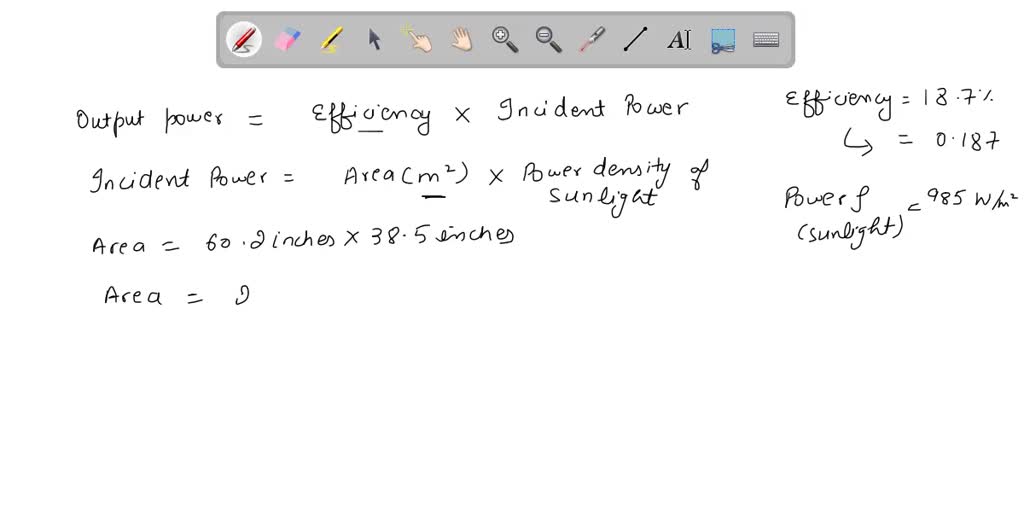 Output power = Efficiency × Incident Power
Incident Power = Area (m²) × Power density of sunlight
Area = 60.2 inches × 38.5 inches
Area = 2
Efficiency = 18.7%
↳ = 0.187
Power of (sunlight) = 985 W/m²